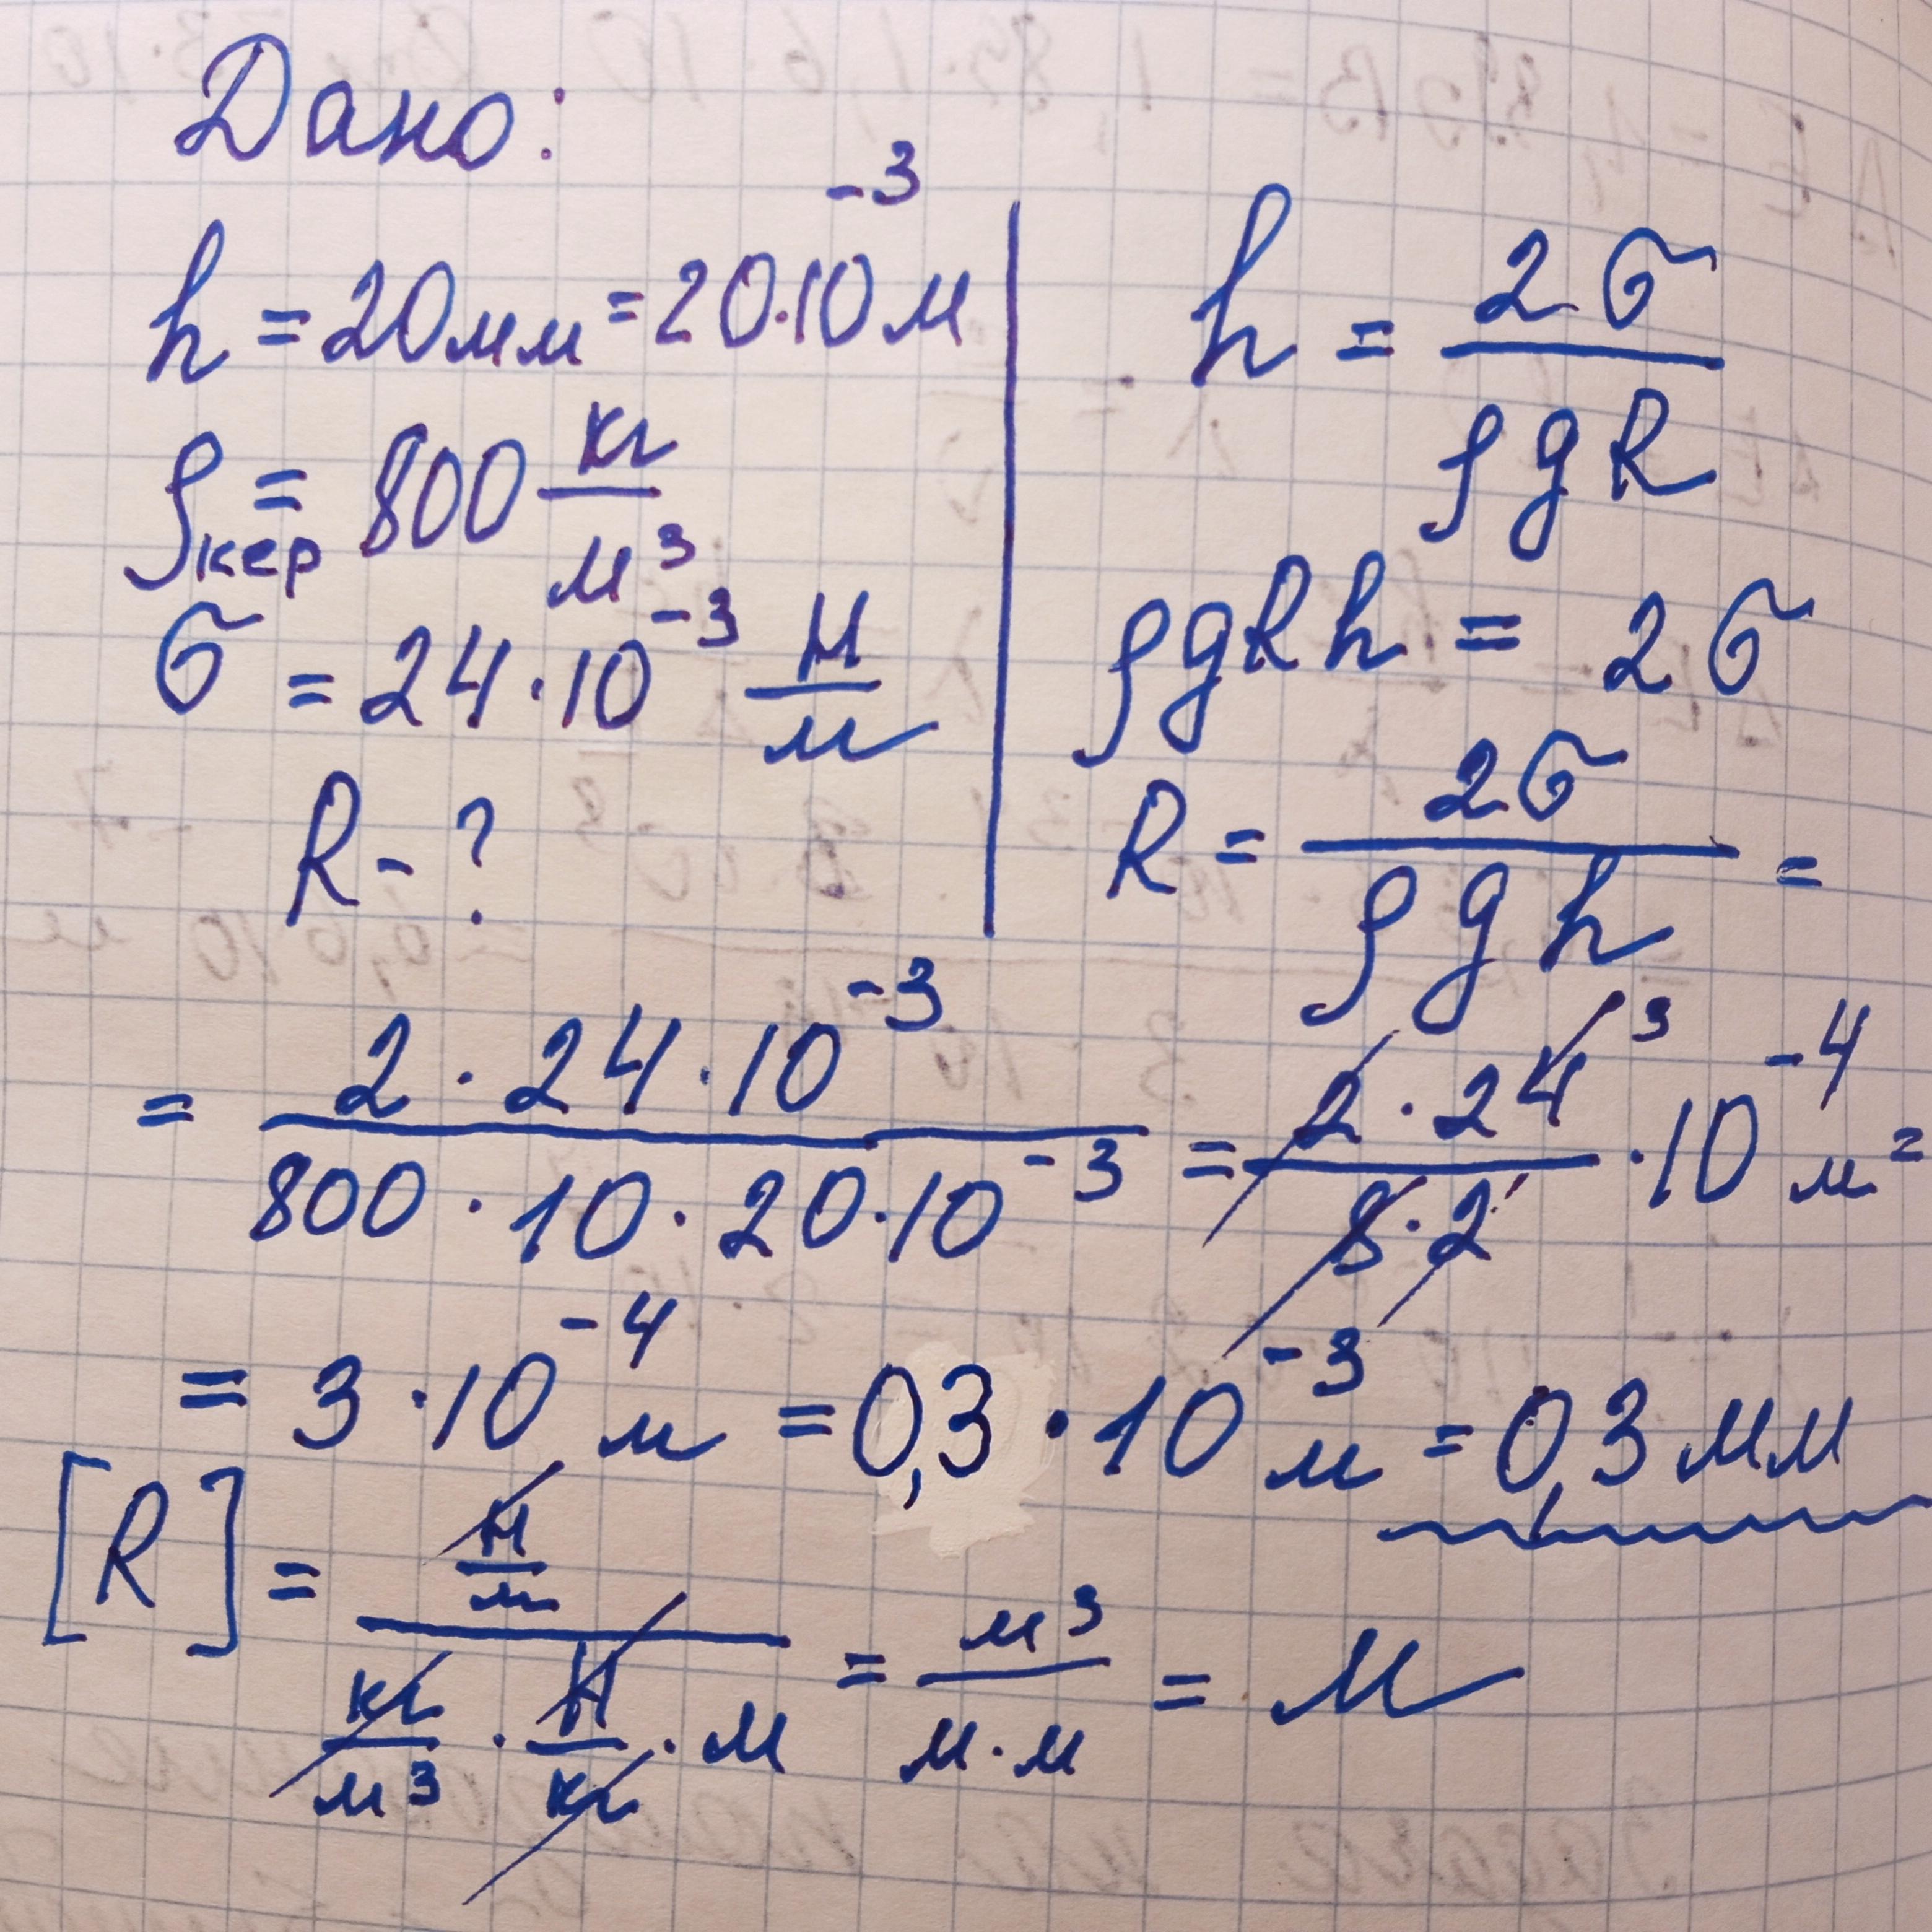 Дано:
h = 20мм = 20·10⁻³ м
ρкер = 800 кг/м³
σ = 24·10⁻³ Н/м
R - ?
h = 2σ/ρgR
ρgRh = 2σ
R = 2σ/ρgh =
= 2·24·10⁻³/800·10·20·10⁻³ = 2·24³/8·2 ·10⁻⁴ м =
= 3·10⁻⁴ м = 0,3·10⁻³ м = 0,3 мм
[R] = Н/м / кг/м³ · Н/кг · м = м³/м·м = м